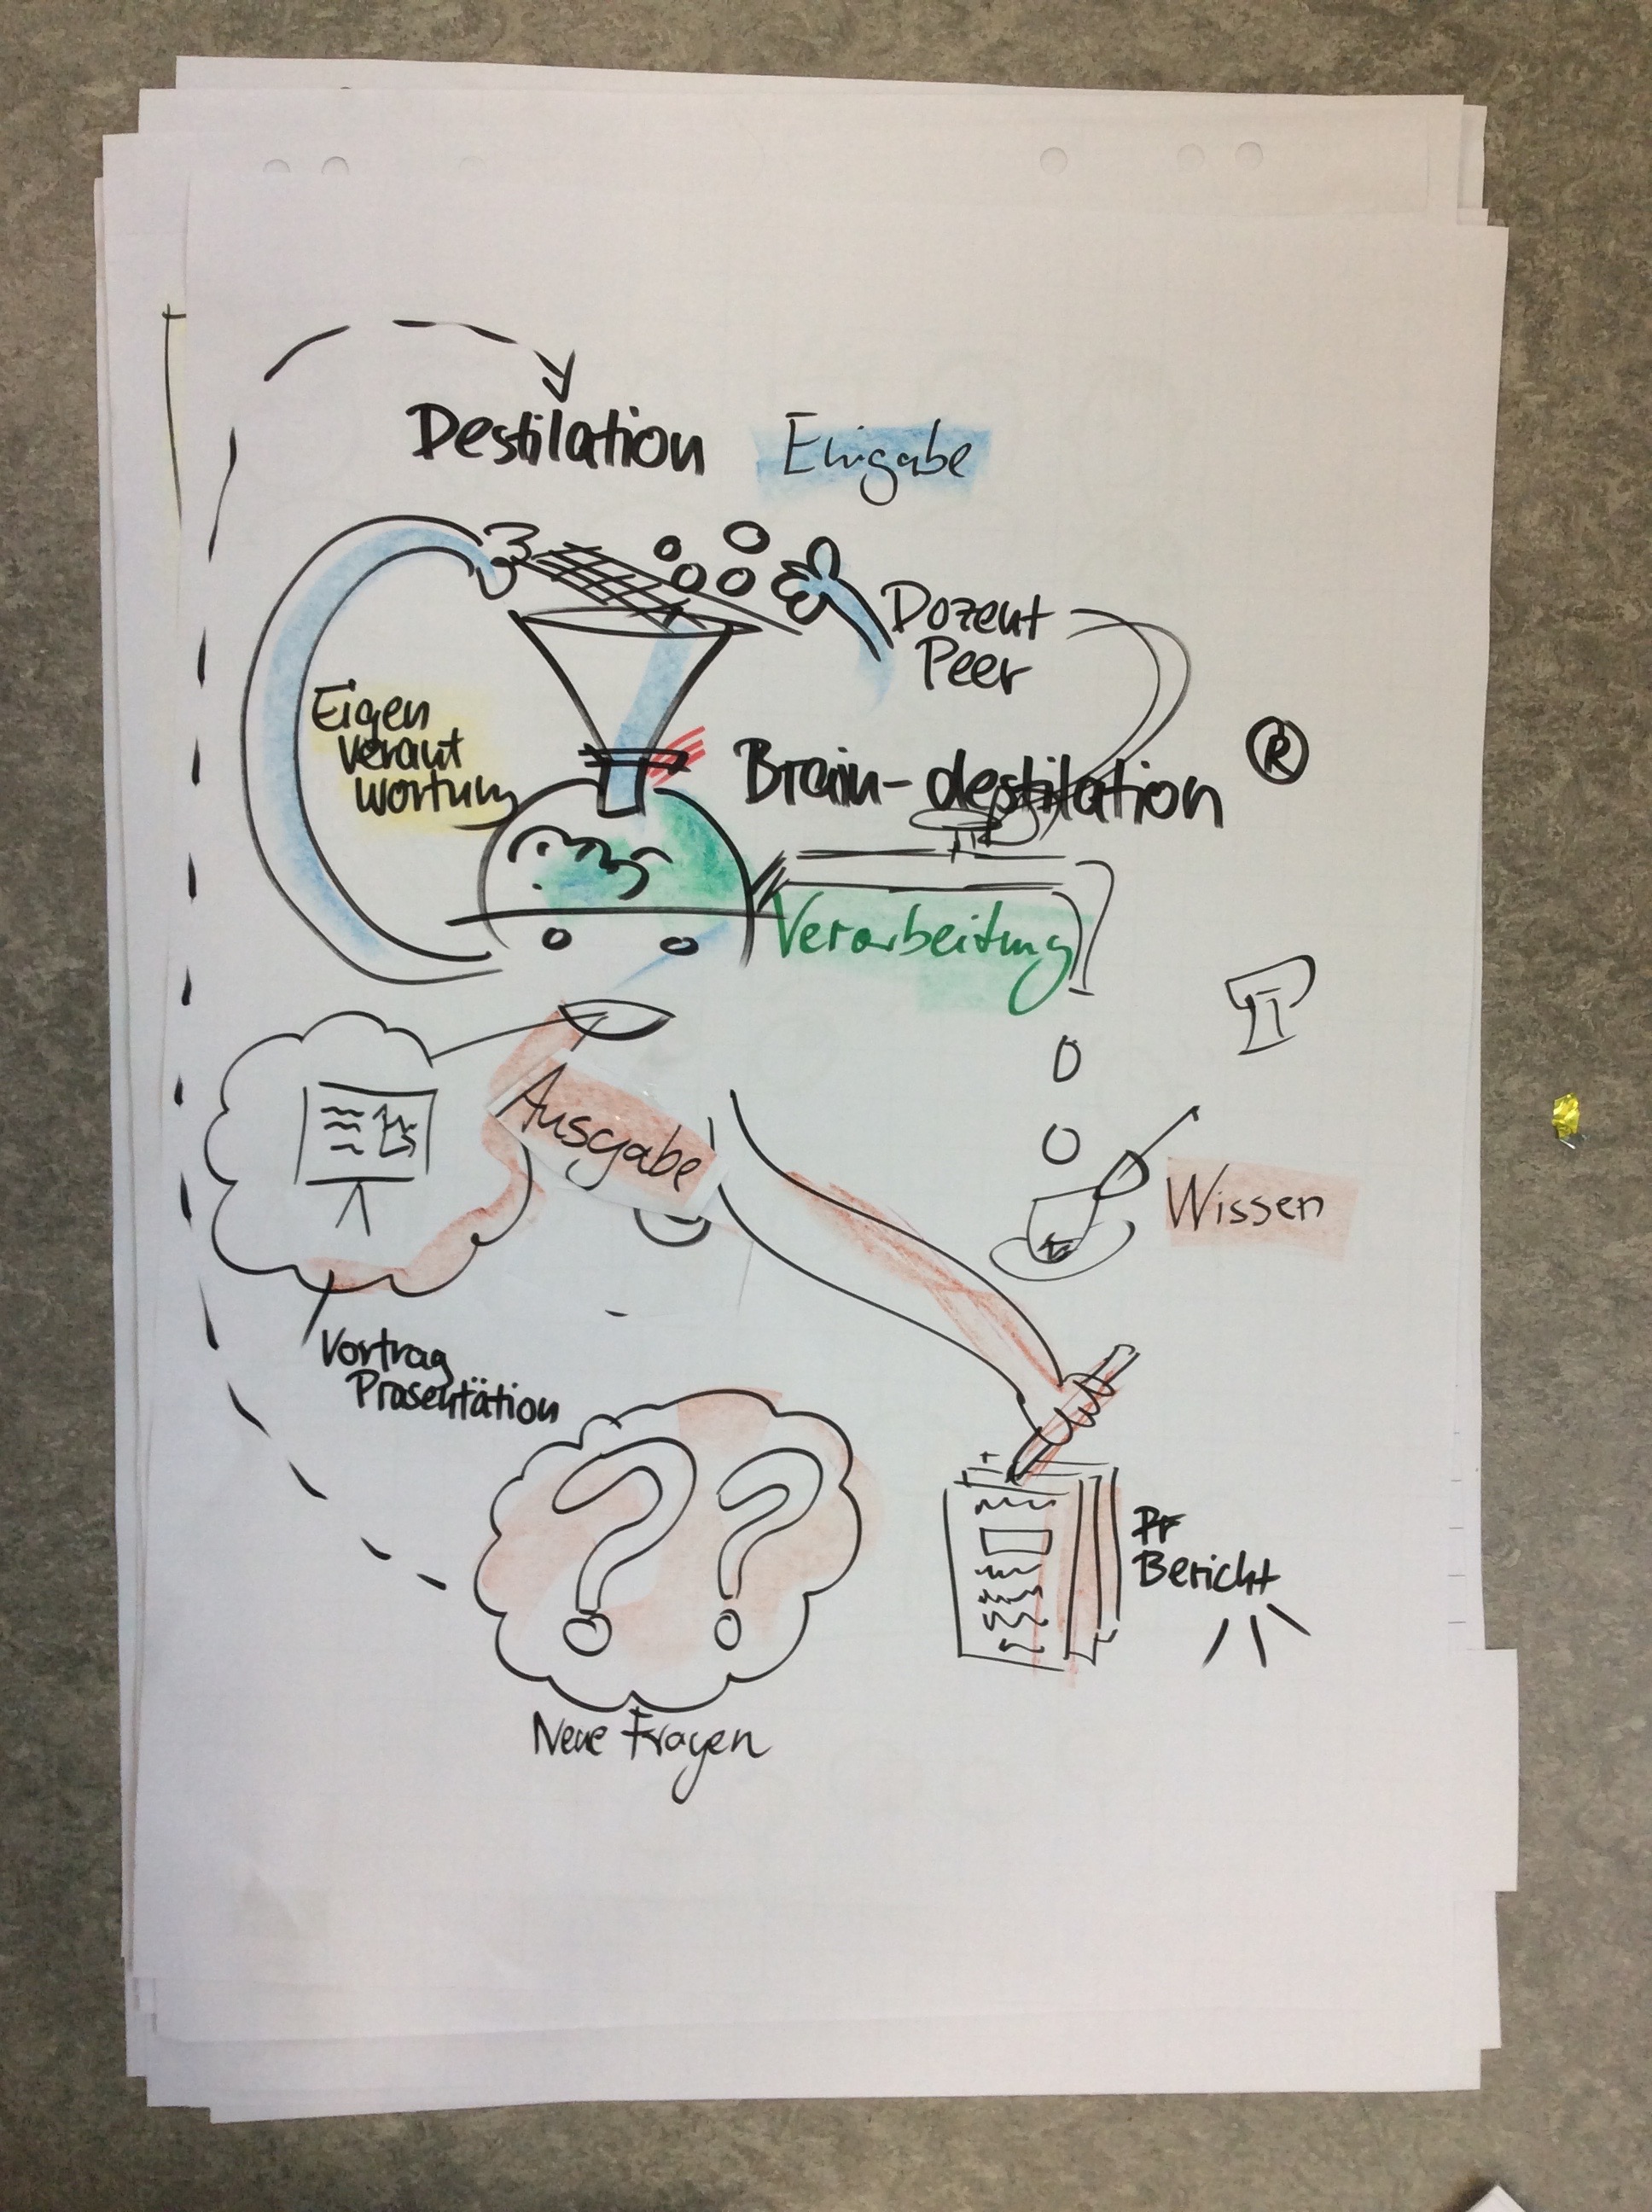 Destilation
Eingabe
Dozent
Peer
Eigen
verant
wortung
Brain-destilation
®
Verarbeitung
Ausgabe
Wissen
Vortrag
Prasentätion
Bericht
Neue Fragen